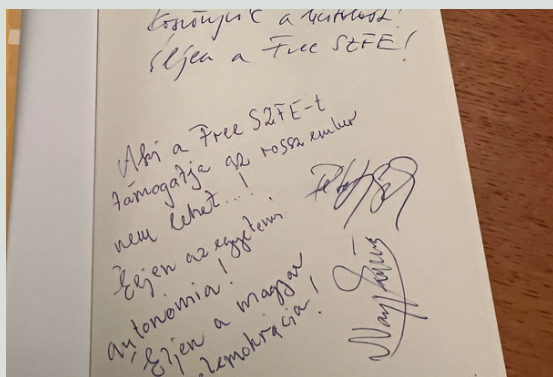 Köszönjük a
éljen a Free SZFE!
Aki a Free SZFE-t
támogatja az rossz ember
nem lehet...!
Éljen az egyetemi
autonómia!
Éljen a magyar
demokrácia!
Nagy